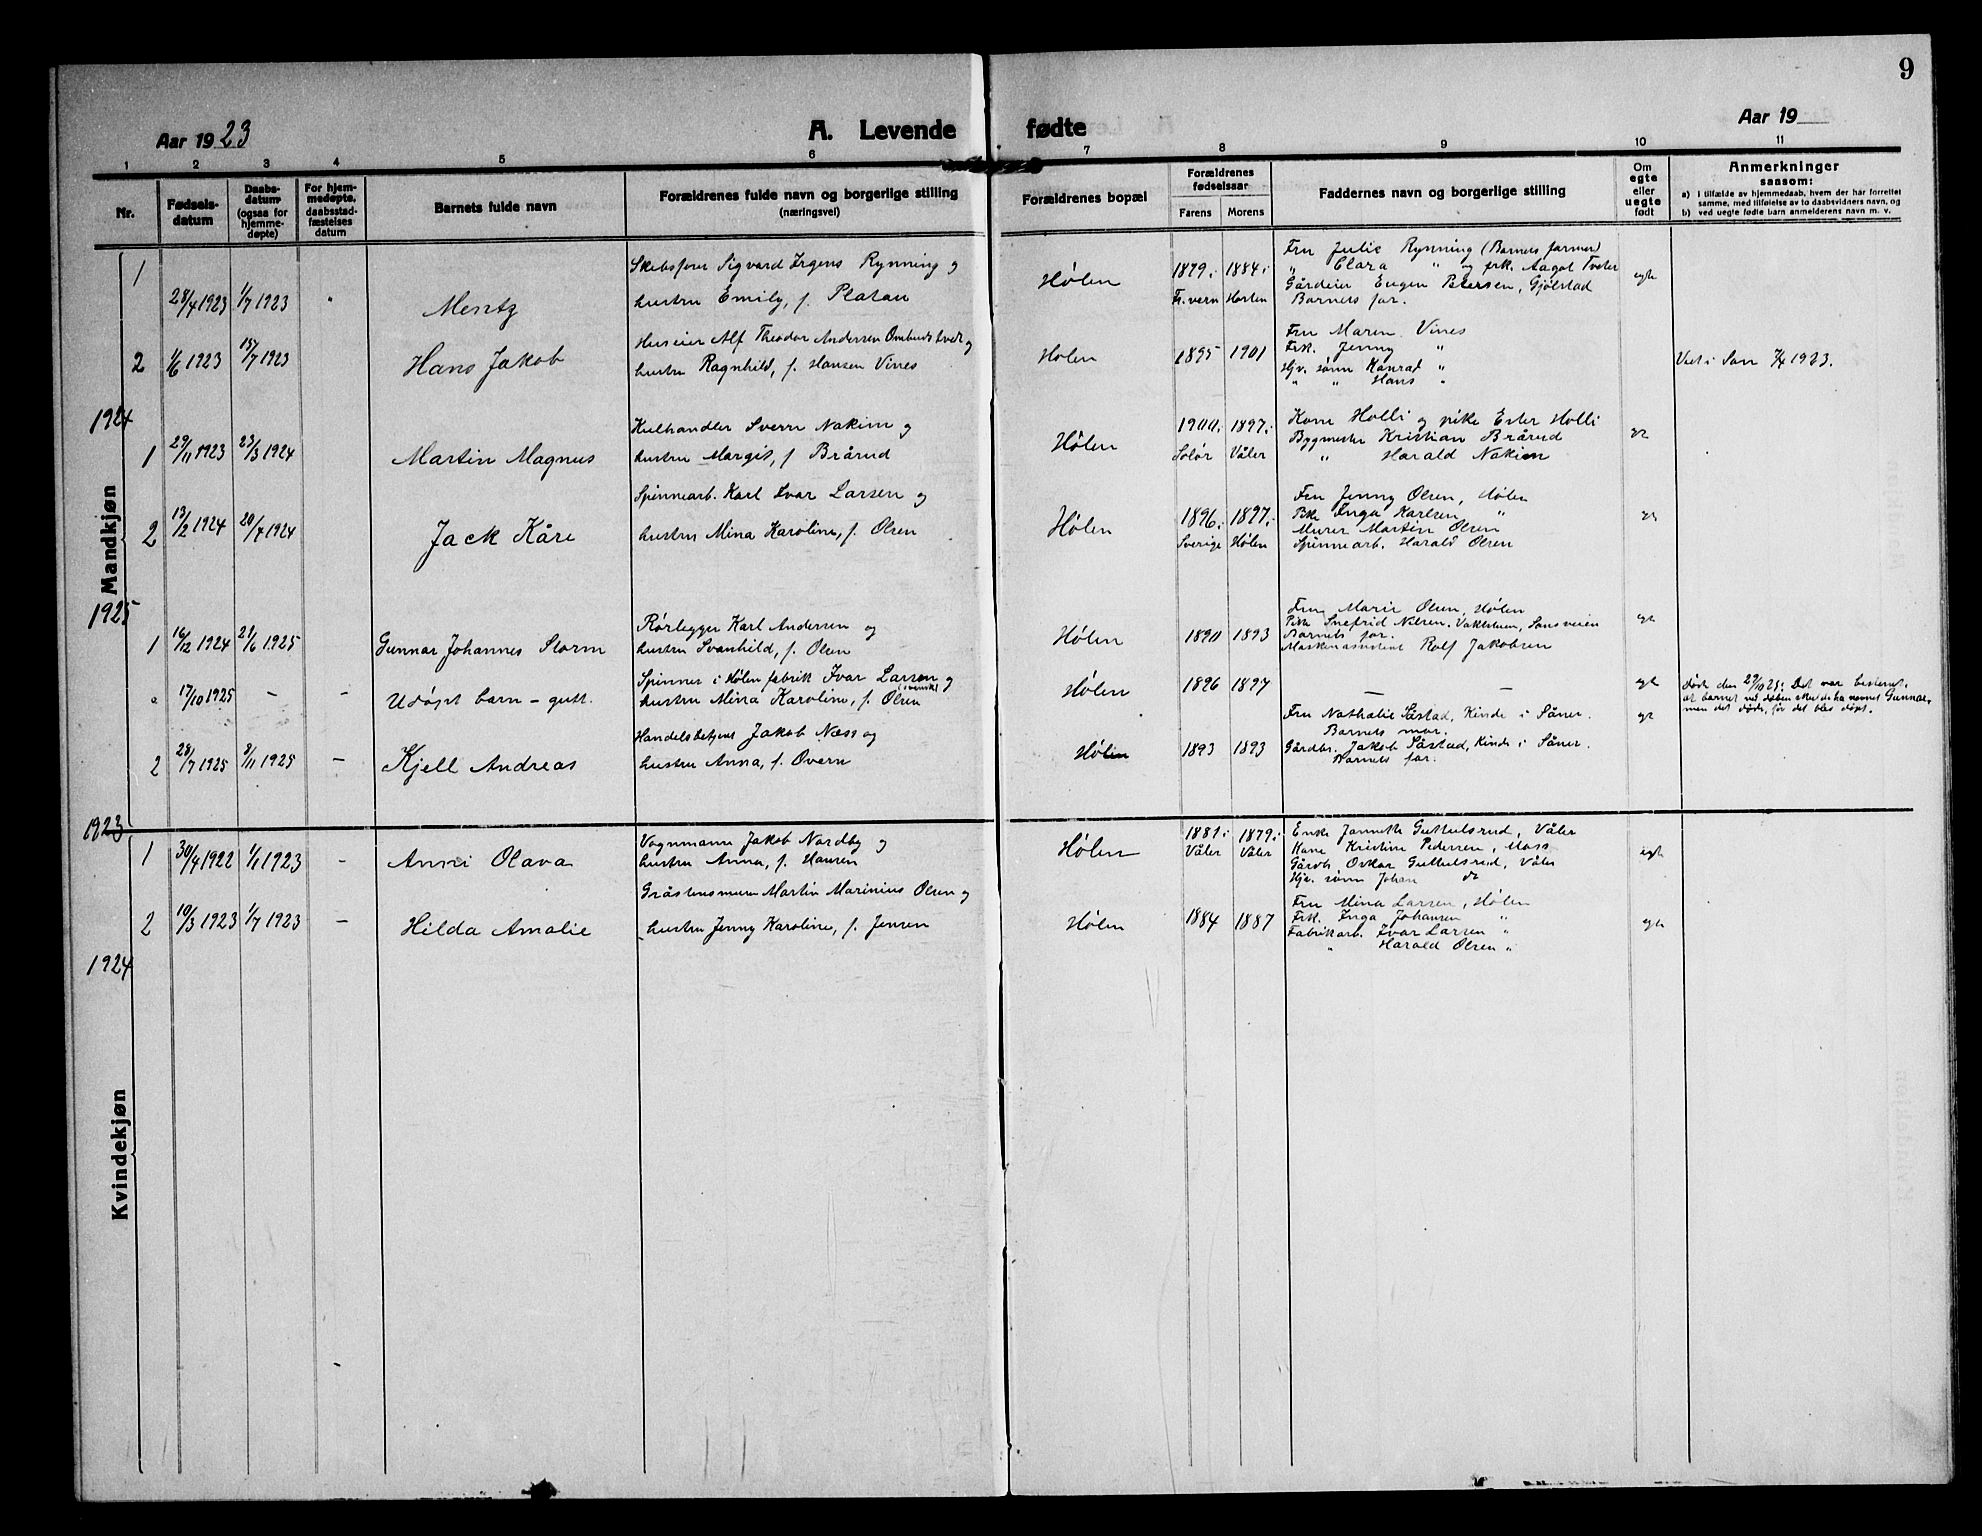 9
Aar 1923
A. Levende fødte
Aar 19
1 2 3 4 5 6 7 8 9 10 11
Nr.
Fødsels-
datum
Daabs-
datum
(ogsaa for
hjemme-
døpte)
For hjem-
medøpte,
daabsstad-
fæstelses
datum
Barnets fulde navn
Forældrenes fulde navn og borgerlige stilling
(næringsvei)
Forældrenes bopæl
Forældrenes
fødselsaar
Farens Morens
Faddernes navn og borgerlige stilling
Om
egte
eller
uegte
født
Anmerkninger
saasom:
a) i tilfælde av hjemmedaab, hvem der har forrettet
samme, med tilføielse av to daabsvidners navn, og
b) ved uegte fødte barn anmelderens navn m. v.
Mandkjøn
1
28/4 1923 1/7 1923 "
Mentz
Skibsfører Sigvard Irgens Rynning og
hustru Emily, f. Platou
Hølen
1879. 1884.
Fr.vern Horten
Fru Julie Rynning (Barnets farmor)
" Clara " og frk. Aagot Tveter
Gårdeier Eugen Petersen, Gjølstad
Barnets far.
egte
2 1/6 1923 15/7 1923
Hans Jakob
Huseier Alf Theodor Andersen Ombudstvedt og
hustru Ragnhild, f. Hansen Vines
Hølen
1895 1901
Fru Maren Vines
Frk. Jenny "
Gv. sønn Konrad "
" " Hans "
Født i Son 1923.
1924
1 29/11 1923 23/3 1924
Martin Magnus
Kulhandler Sverre Nakim og
hustru Margit, f. Brårud
Hølen
1900. 1897.
Solør Våler
Kone Holli og pike Ester Holli
Bygmester Kristian Brårud
" Harald Nakim
egte
2 13/2 1924 20/4 1924
Jack Kåre
Spinnearb. Karl Ivar Larsen og
hustru Mina Karoline, f. Olsen
Hølen
1896. 1897.
Sverige Hølen
Fru Jenny Olsen, Hølen
Pike Inga Karlsen "
Murer Martin Olsen
Spinnearb. Harald Olsen
egte
1925
1 16/12 1924 21/6 1925
Gunnar Johannes Storm
Rørlegger Karl Andersen og
hustru Svanhild, f. Olsen
Hølen
1890 1893
Fru Marie Olsen, Hølen
Pike Snefrid Nilsen, Sonsveien
Barnets far.
Maskinassistent Rolf Jakobsen
egte
17/10 1925 - -
Udøpt barn - gutt.
Spinner i Hølen fabrik Ivar Larsen og
(svensk)
hustru Mina Karoline, f. Olsen
Hølen
1896 1897
—
egte
Døde den 29/10 25. Det var bestemt,
at barnet ved dåben skulde ha navnet Gunnar,
men det døde, før det blev døpt.
2 28/7 1925 8/11 1925 -
Kjell Andreas
Handelsbetjent Jakob Næss og
hustru Anna, f. Overn
Hølen
1893 1893
Fru Nathalie Såstad, Kinde i Såner.
Barnets mor.
Gårdbr. Jakob Såstad, Kinde i Såner.
Barnets far.
egte
1923
Kvindekjøn
1 30/4 1922 1/1 1923 -
Anni Olava
Vognmann Jakob Nordby og
hustru Anna, f. Hansen
Hølen
1881. 1879.
Våler Våler
Enke Jannette Guttulsrud, Våler
Kone Kristine Pedersen, Moss
Gårdb. Oskar Guttulsrud, Våler
Hjv. sønn Johan do
egte
2 10/3 1923 1/7 1923 -
Hilda Amalie
Gråstensmurer Martin Marinius Olsen og
hustru Jenny Karoline, f. Jensen
Hølen
1884 1887
Fru Mina Larsen, Hølen
Frk. Inga Johansen "
Fabrikarb. Ivar Larsen "
" Harald Olsen "
egte
1924